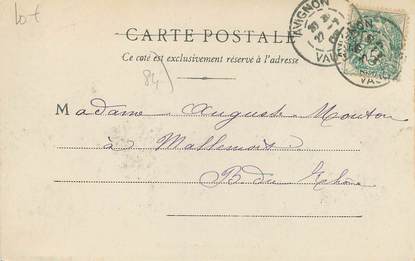 lot
CARTE POSTALE
Ce côté est exclusivement réservé à l'adresse
84)
Madame Auguste Mouton
à Mallemort
B. du Rhône
AVIGNON
AVIGNON